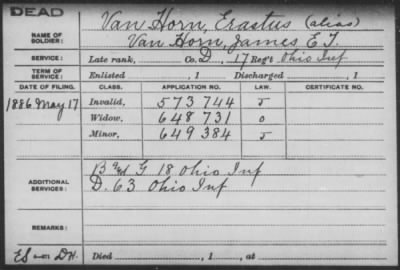 DEAD
Van Horn, Erastus (alias)
NAME OF SOLDIER: Van Horn, James E.
SERVICE: Late rank, Co. D, 17 Reg't Ohio Inf
TERM OF SERVICE: Enlisted , 1 Discharged , 1
DATE OF FILING. CLASS. APPLICATION NO. LAW. CERTIFICATE NO.
1886 May 17 Invalid, 573744
Widow, 648731 0
Minor, 649384
ADDITIONAL SERVICES: G 18 Ohio Inf
D. 63 Ohio Inf
REMARKS:
Died , 1 , at